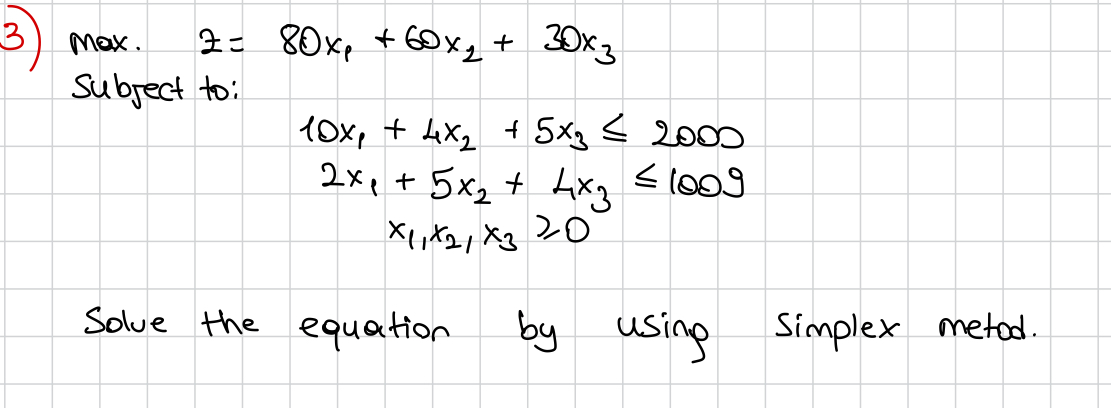 3) max. z = 80x₁ + 60x₂ + 30x₃
Subject to:
10x₁ + 4x₂ + 5x₃ ≤ 2000
2x₁ + 5x₂ + 4x₃ ≤ 1009
x₁, x₂, x₃ ≥ 0
Solve the equation by using simplex metod.